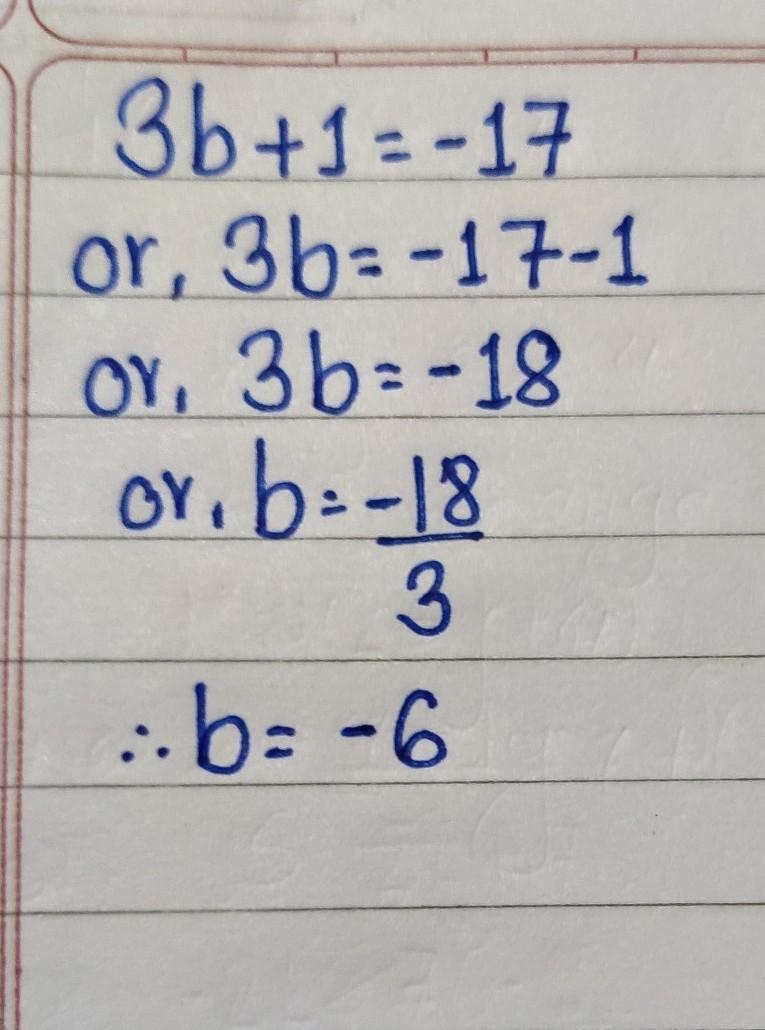 3b+1=-17
or, 3b=-17-1
or, 3b=-18
or, b=-18/3
∴ b= -6